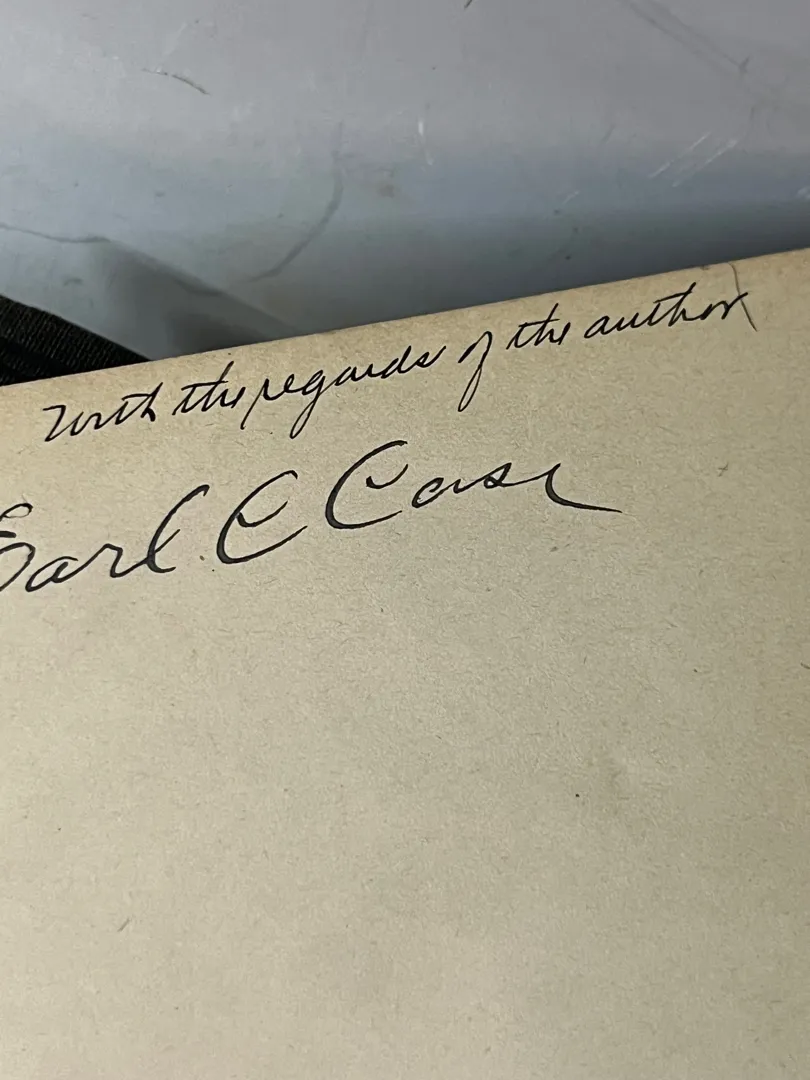 With the regards of the author
Earl C Case